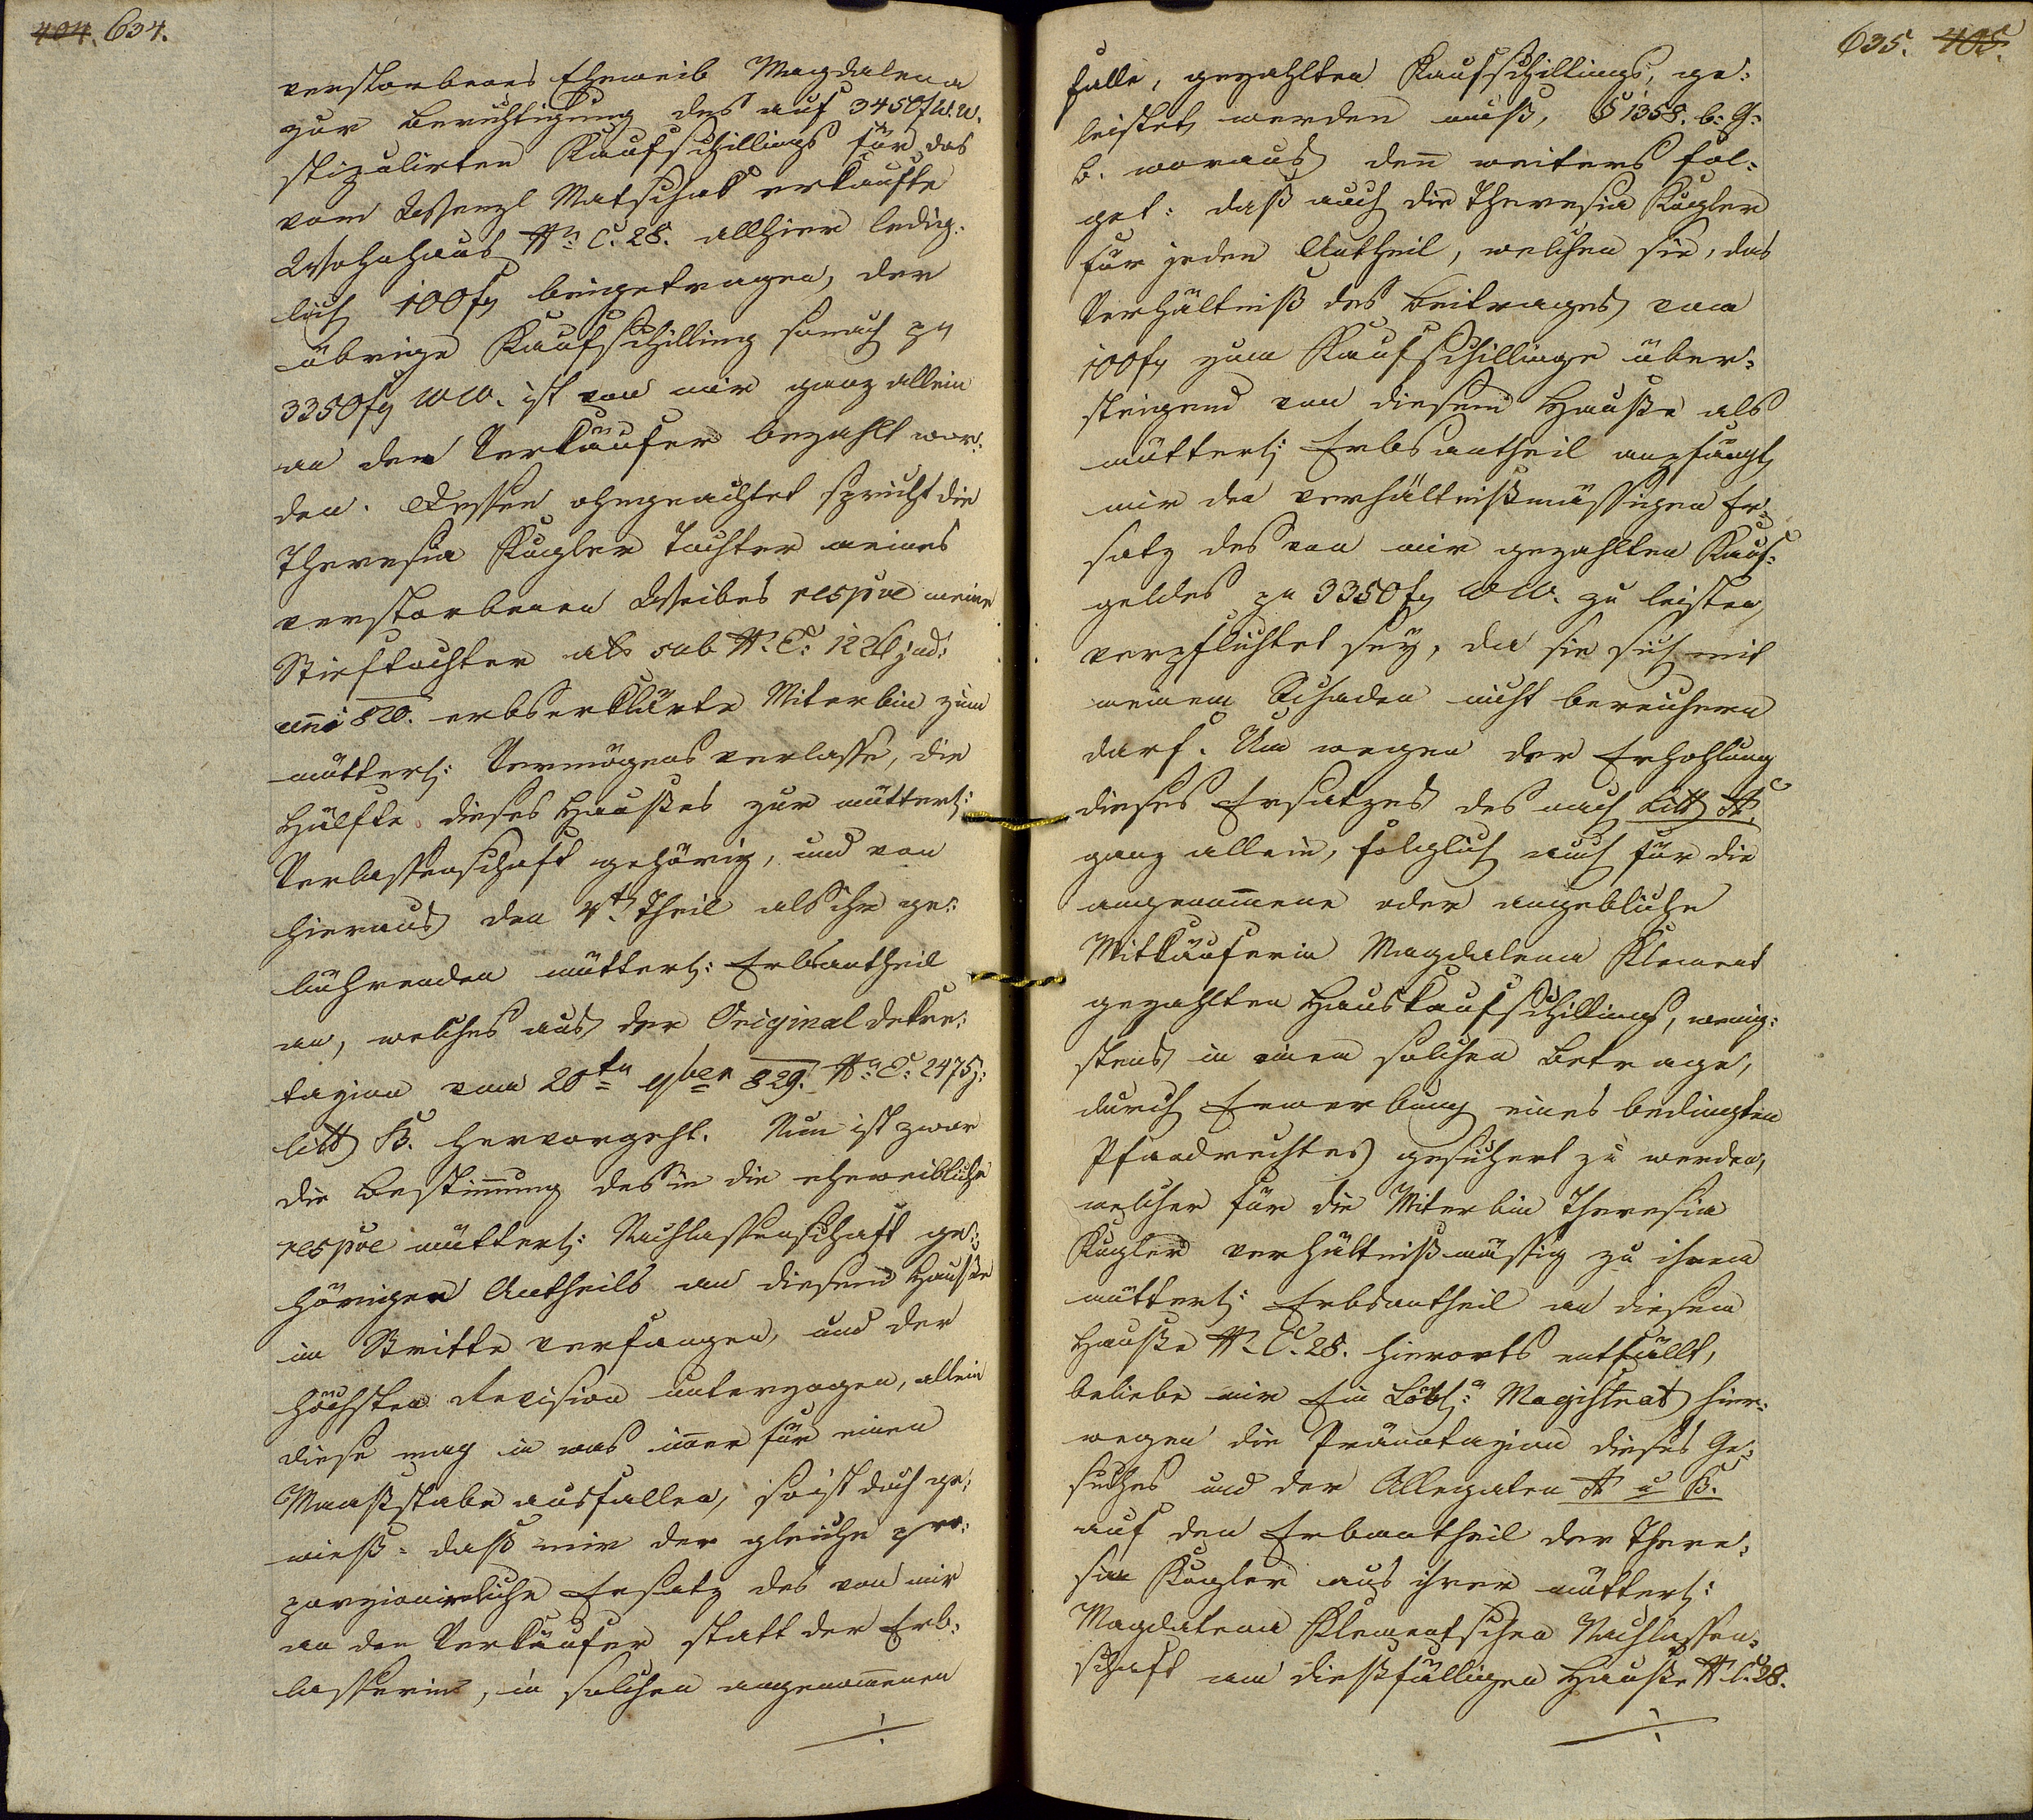 404. 634.
verstorbenes Eheweib Magdalena
zur Berichtigung des auf 3450f W.W.
stipulirten Kaufschillings für das
vom Wenzl Matschak erkaufte
Wohnhaus N: C. 28. allhier ledig-
lich 100f beigetragen, der
übrige Kaufschilling sonach pr
3350f WW. ist von mir ganz allein
an den Verkäufer bezahlt wor-
den. Dessen ohngeachtet spricht die
Theresia Kugler Tochter meines
verstorbenen Weibes respve meine
Stieftochter als sub N: E: 1226 jud:
anni 820. erbserklärte Miterbin zum
mütterl: Vermögensverlasse, die
Hälfte dieses Hauses zur mütterl:
Verlassenschaft gehörig, und von
hieraus den 4t Theil als ihr ge-
bührenden mütterl: Erbsantheil
an, welches aus der Original dekre-
tazion vom 20tn 9ber 829. N: E: 2475 j:
litt B. hervorgeht. Nun ist zwar
die Bestimmung des in die eheweibliche
respve mütterl: Nachlassenschaft ge-
hörigen Antheils an diesem Hause
im Streitte verfangen, und der
höchsten Revision unterzogen, allein
diese mag in was immer für einen
Maaßstabe ausfallen, so ist doch ge-
wieß: daß mir der gleiche pro-
porzionirliche Ersatz des von mir
an den Verkäufer statt der Erb-
lasserin, in solchen angenommenen
635. 405.
falle, gezahlten Kaufschillings, ge-
leistet werden muß, § 1358. b: G:
B. woraus denn weiters fol-
get: daß auch die Theresia Kugler
für jeden Antheil, welchen sie, das
Verhältniß des Beitrages von
100f zum Kaufschillinge über-
steigend von diesem Hause als
mütterl: Erbsantheil empfängt
mir den verhältnißmässigen Er-
satz des von mir gezahlten Kauf-
geldes pr 3350f WW. zu leisten,
verpflichtet sey, da sie sich mit
meinem Schaden nicht bereichern
darf. Um wegen der Erhohlung
dieses Ersatzes des nach Litt A.
ganz allein, folglich auch für die
angenommene oder angebliche
Mitkäuferin Magdalena Klement
gezahlten Hauskaufschillings, wenig-
stens in einem solchen Betrage,
durch Erwerbung eines bedingten
Pfandrechtes gesichert zu werden,
welcher für die Miterbin Theresia
Kugler verhältnißmässig zu ihrem
mütterl: Erbsantheil an diesem
Hause N: C. 28. hierorts entfällt,
beliebe mir Ein Löbl: Magistrat hier-
wegen die Pränotazion dieses Ge-
suches und der Allegaten A u B.
auf den Erbantheil der There-
sia Kugler aus ihrer mütterl:
Magdalena Klementschen Nachlassen-
schaft am dießfälligen Hause N: C. 28.